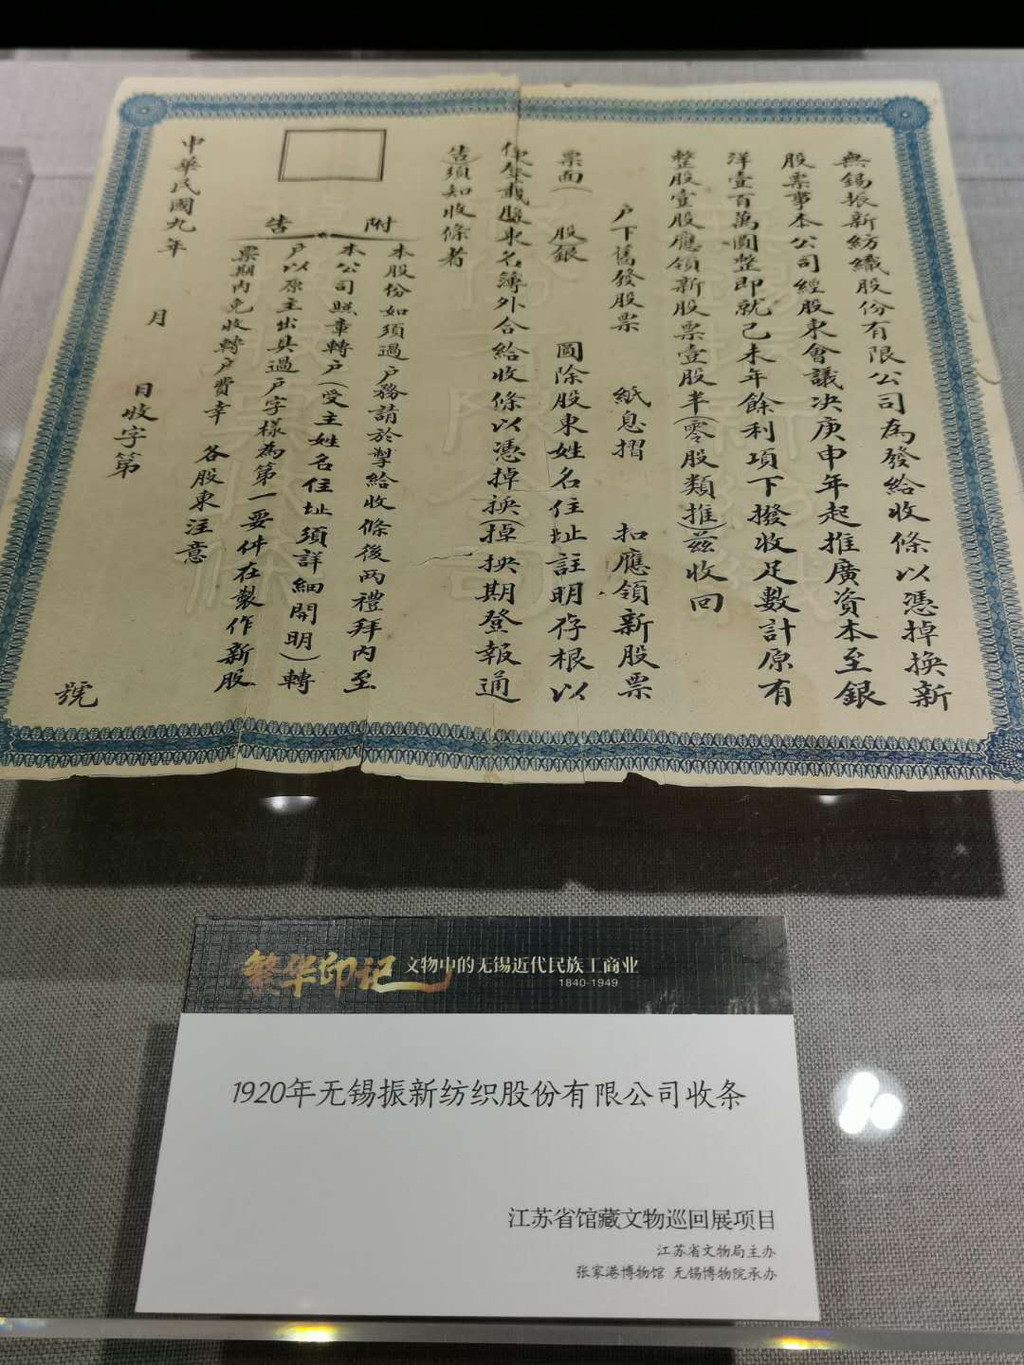 無錫振新紡織股份有限公司為發給收條以憑掉換新
股票事本公司經股東會議决庚申年起推廣資本至銀
洋壹百萬圓整即就己未年餘利項下撥收足數計原有
整股壹股應領新股票壹股半(零股類推)茲收回
户下舊發股票 紙息摺 扣應領新股票
票面( 股銀 圓除股東姓名住址註明存根以
便登載股東名簿外合給收條以憑掉換(掉换期登報通
告須知收條者
附告
本股份如須過户務請於掣給收條後两禮拜内至
本公司照章轉户(受主姓名住址須詳細開明)轉
户以原主出具過户字樣為第一要件在製作新股
票期内免收轉户費幸 各股東注意
中華民國九年 月 日收字第 號
繁华印记 文物中的无锡近代民族工商业
1840-1949
1920年无锡振新纺织股份有限公司收条
江苏省馆藏文物巡回展项目
江苏省文物局主办
张家港博物馆 无锡博物院承办